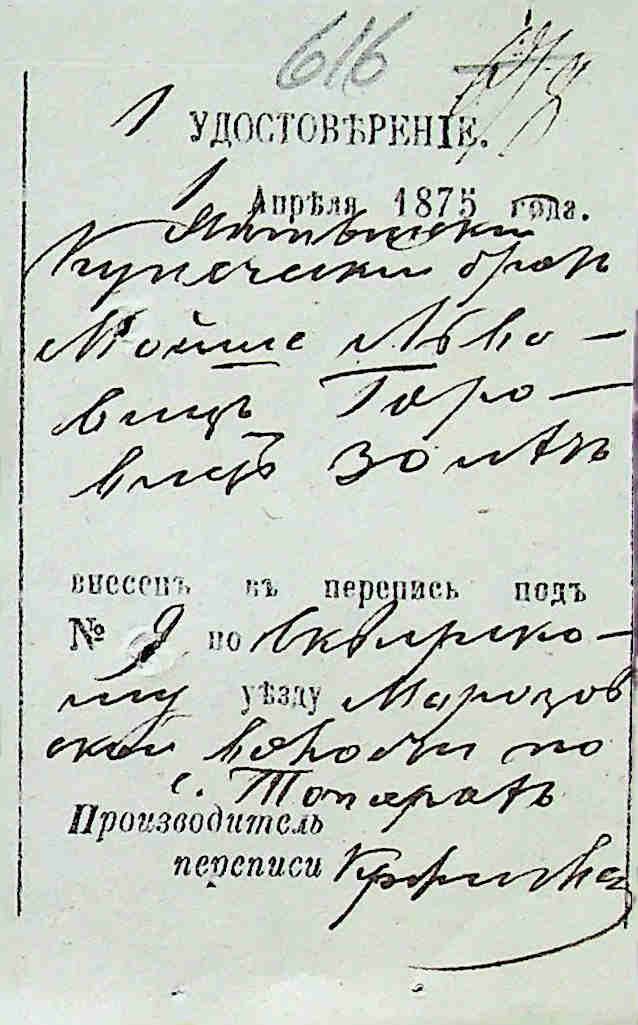 616
1
УДОСТОВѢРЕНІЕ.
1 Апрѣля 1875 года.
Купеческий
Мойше Лѣво-
вицъ Горо-
вицъ золѣнъ
внесенъ въ перепись подъ
№ 9 по Сквирско-
му уѣзду Марозов
ской волости по
с. Топорахъ
Производитель
переписи